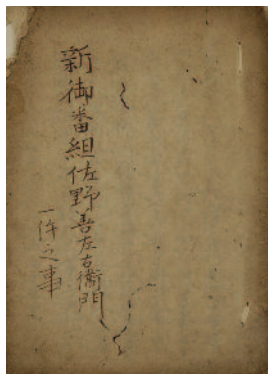 新御番組佐野善左衛門
一件之事